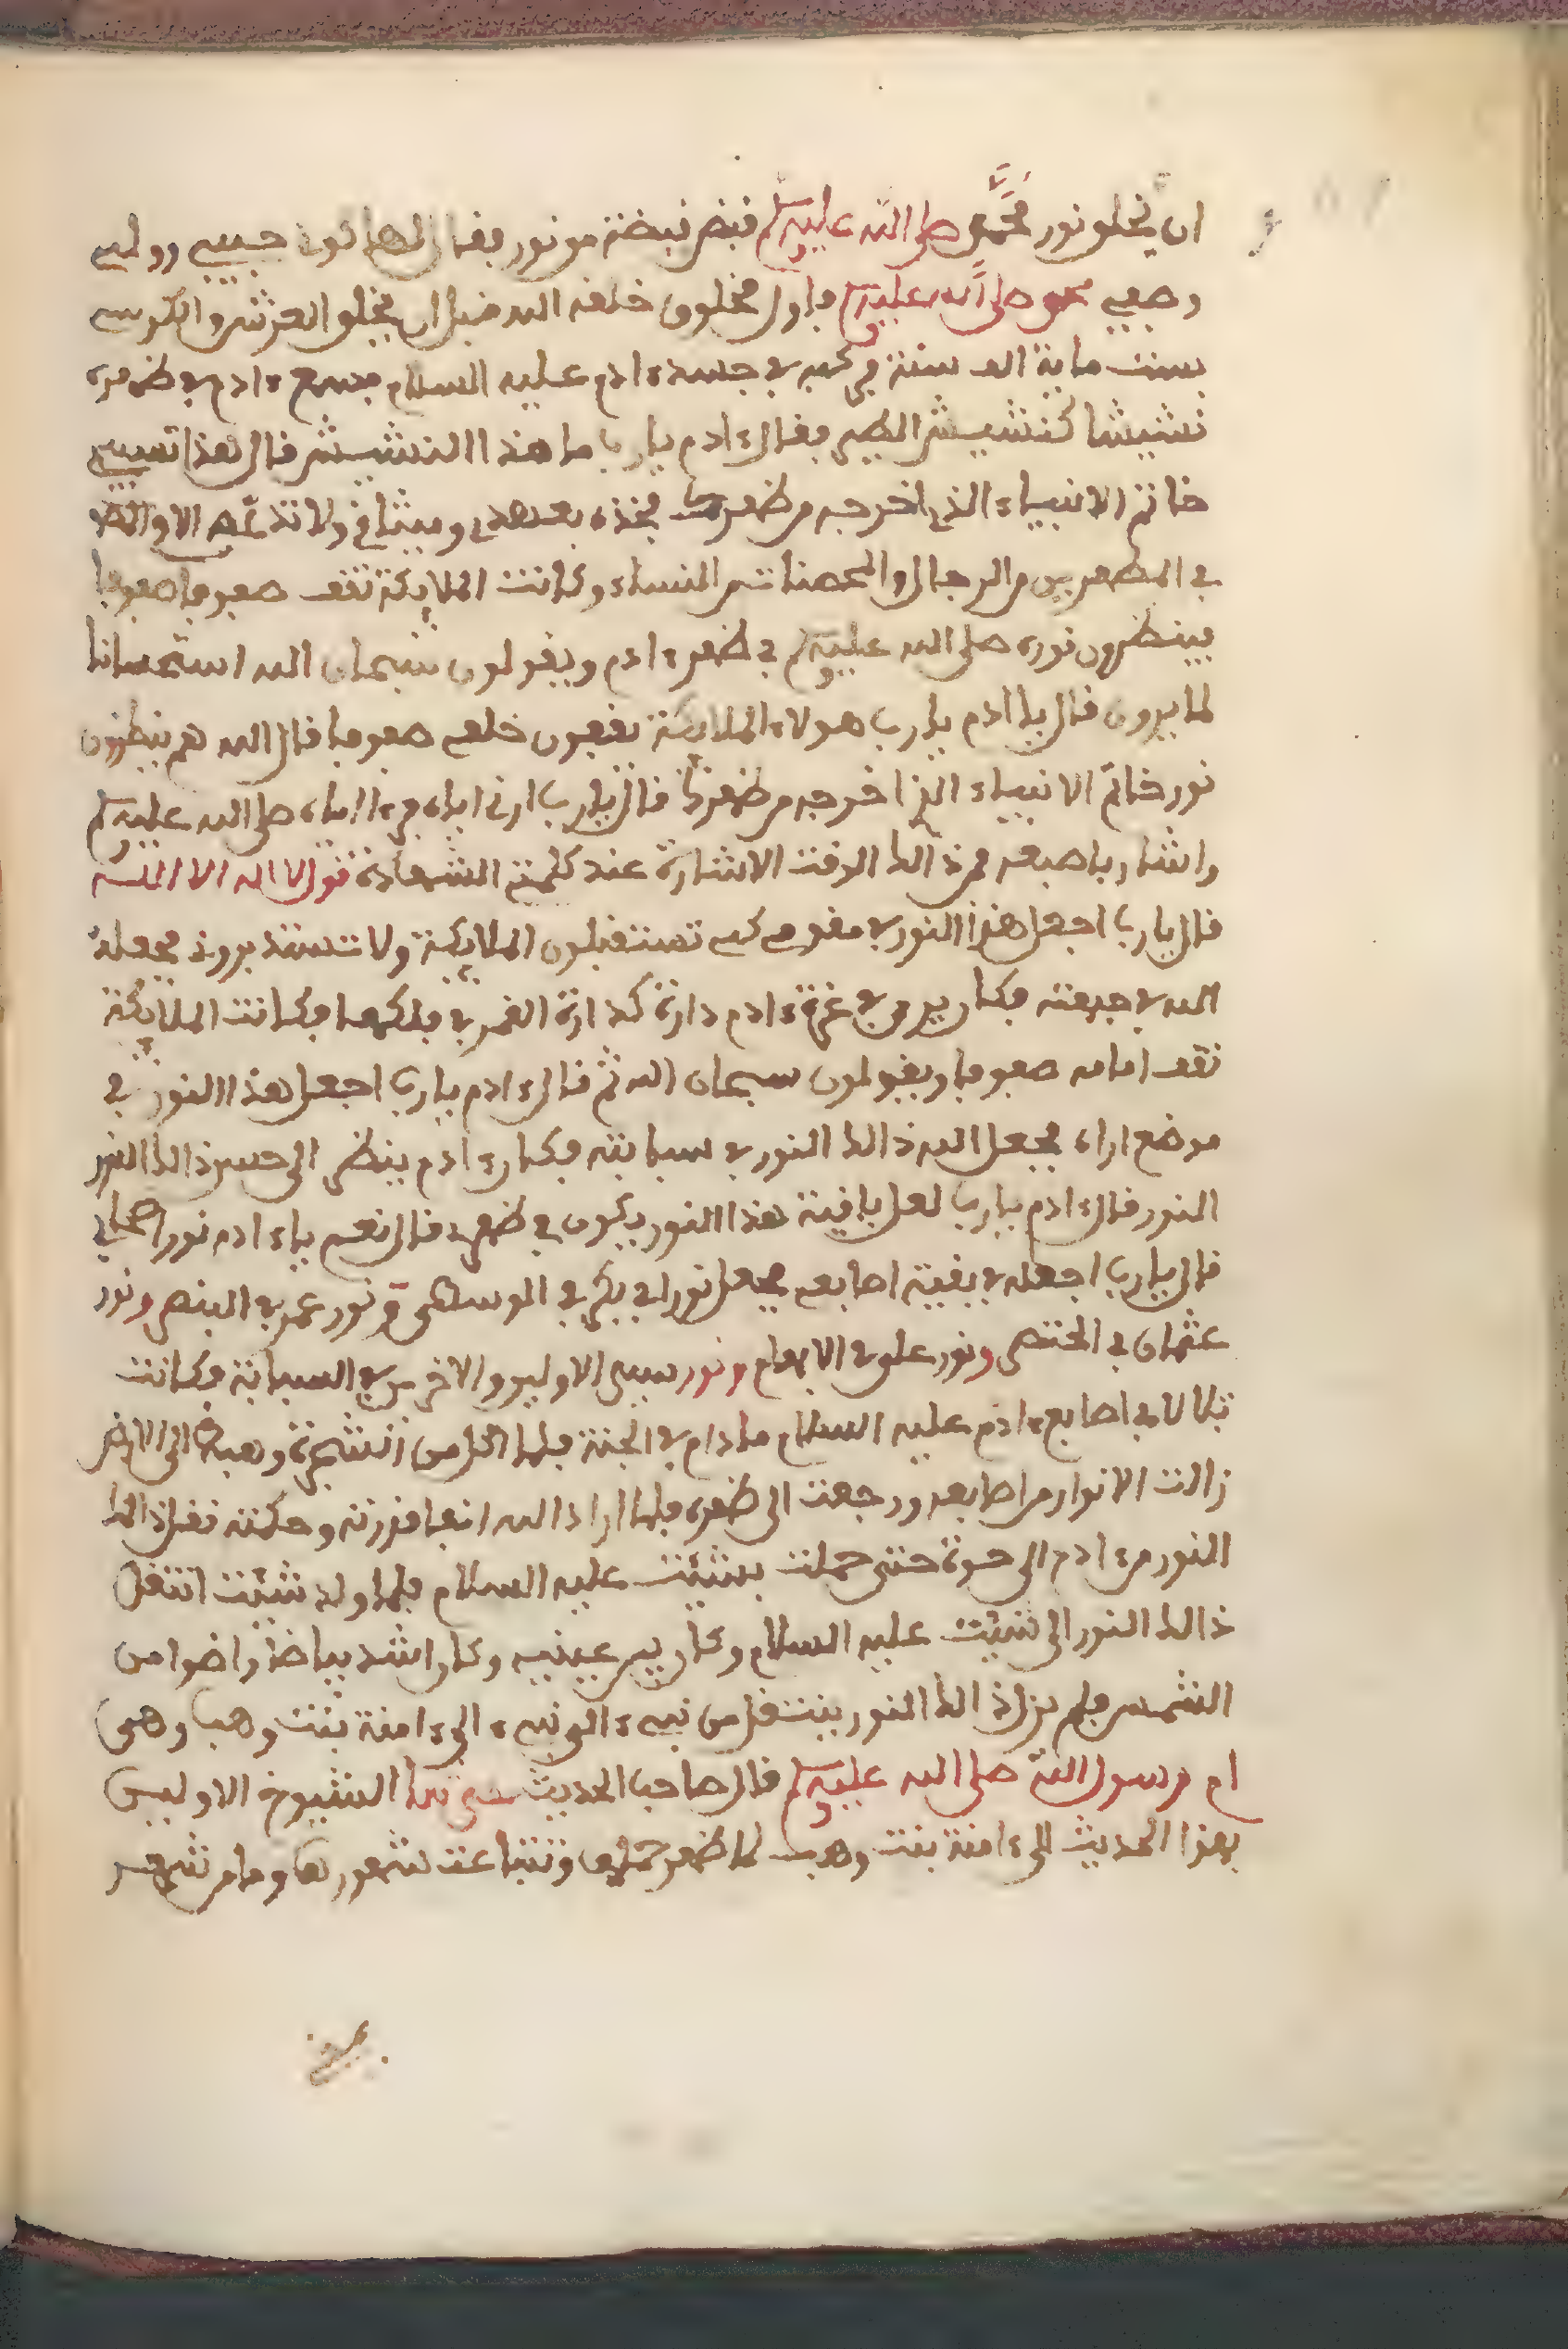 ان يخلق نور محمد صلى الله عليه وسلم قبض قبضة من نور فقال لها كوني حبيبي ووليي
وصفيي محمد صلى الله عليه وسلم فاول مخلوق خلقه الله قبل ان يخلق العرش والكرسي
بست ماية الف سنة في كبه في جسد ءادم عليه السلام فسمع ءادم في ظهره
نشيشا كنشيش الطير فقال ءادم يارب ما هذا النشيش قال هذا تسبيح
خاتم الانبياء الذي اخرجه من ظهرك فخذه بعهدي وميثاقي ولا تدعه الا
في المطهرين من الرجال والمحصنات من النساء وكانت الملايكة تقف صفوفا صفوفا
ينظرون نوره صلى الله عليه وسلم في ظهر ءادم ويقولون سبحان الله استحسانا
لما يرون قال يا ادم يارب هولاء الملايكة يقفون خلفي صفوفا قال الله هم ينظرون
نور خاتم الانبياء الذي اخرجه من ظهرك قال يارب ارني اياه صلى الله عليه وسلم
واشار باصبعه من ذالك الوقت الاشارة عند كلمة الشهادة قول لا اله الا الله
قال يارب اجعل هذا النور في مقدمي كي تستقبلون الملايكة ولا تستدبروني فجعله
الله في جبهته فكان يرى في غرة ءادم دارة كدارة القمر في فلكها فكانت الملايكة
تقف امامه صفوفا ويقولون سبحان الله ثم قال ءادم يارب اجعل هذا النور في
موضع اراه فجعل الله ذالك النور في سبابته فكان ءادم ينظر الى حسن ذالك النور
النور قال ءادم يارب لعل باقية هذا النور يكون في ظهري قال نعم ياءادم نور اصحابه
قال يارب اجعله في بقية اصابعي فجعل نور ابي بكر في الوسطى ونور عمر في البنصر ونور
عثمان في الخنصر ونور علي في الابهام ونور سيد الاولين والاخرين في السبابة فكانت
تلالا في اصابع ءادم عليه السلام مادام في الجنة فلما اكل من الشجرة وهبط الى الارض
زالت الانوار من اصابعه ورجعت الى ظهره فلما اراد الله انفاذ قدرته وحكمته نقل ذالك
النور من ءادم الى حوة حتى حملت بشيت عليه السلام فلما ولد شيت انتقل
ذالك النور الى شيت عليه السلام وكان بين عينيه وكان اشد بياضا واضوا من
الشمس فلم يزل ذالك النور ينتقل من نبيء الى نبيء الى ءامنة بنت وهب وهي
ام رسول الله صلى الله عليه وسلم قال صاحب الحديث الشيوخ الاولين
بهذا الحديث الى ءامنة بنت وهب لما ظهر حملها وتتابعت شهورها وما من شهر